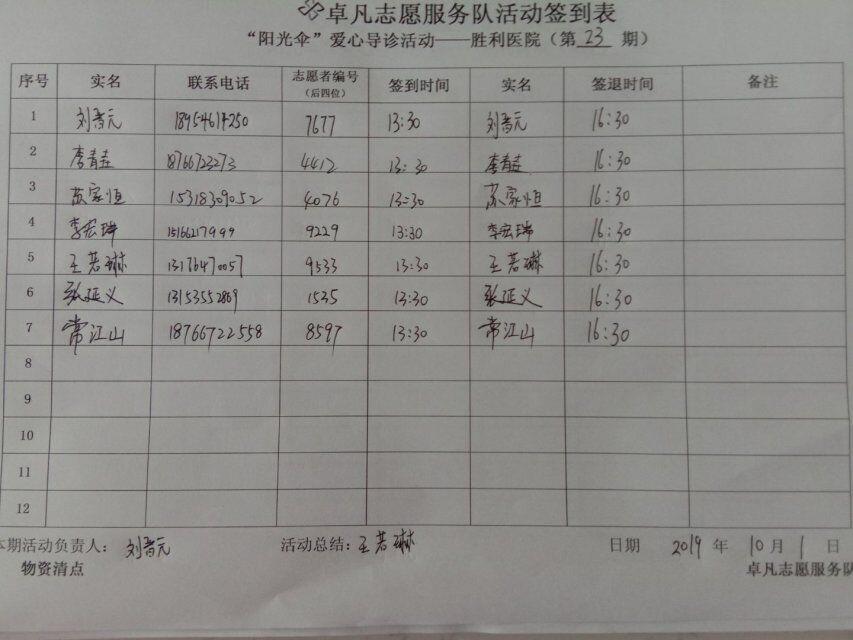 卓凡志愿服务队活动签到表
“阳光伞”爱心导诊活动——胜利医院（第 23 期）
序号 实名 联系电话 志愿者编号（后四位） 签到时间 实名 签退时间 备注
1 刘晋元 18954614250 7677 13:30 刘晋元 16:30
2 李青 18766723273 4412 13:30 李青 16:30
3 苏家恒 15318309052 4076 13:30 苏家恒 16:30
4 李宏瑞 15166217999 9229 13:30 李宏瑞 16:30
5 王若琳 13176470057 9533 13:30 王若琳 16:30
6 张延义 13153552869 1535 13:30 张延义 16:30
7 常江山 18766722558 8597 13:30 常江山 16:30
8
9
10
11
12
本期活动负责人： 刘晋元 活动总结: 王若琳 日期 2019 年 10 月 1 日
物资清点 卓凡志愿服务队